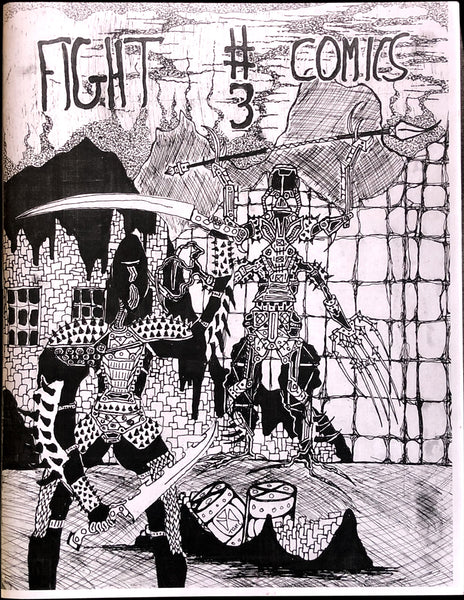 FIGHT # COMICS
3